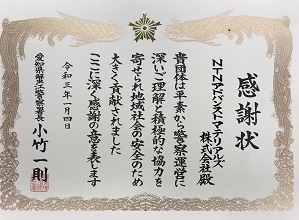 感謝状
NTNアドバンストマテリアルズ
株式会社殿
貴団体は平素から警察運営に
深いご理解と積極的な協力を
寄せられ地域社会の安全のため
大きく貢献されました
ここに深く感謝の意を表します
令和三年一月四日
愛知県蟹江警察署長
小竹一則